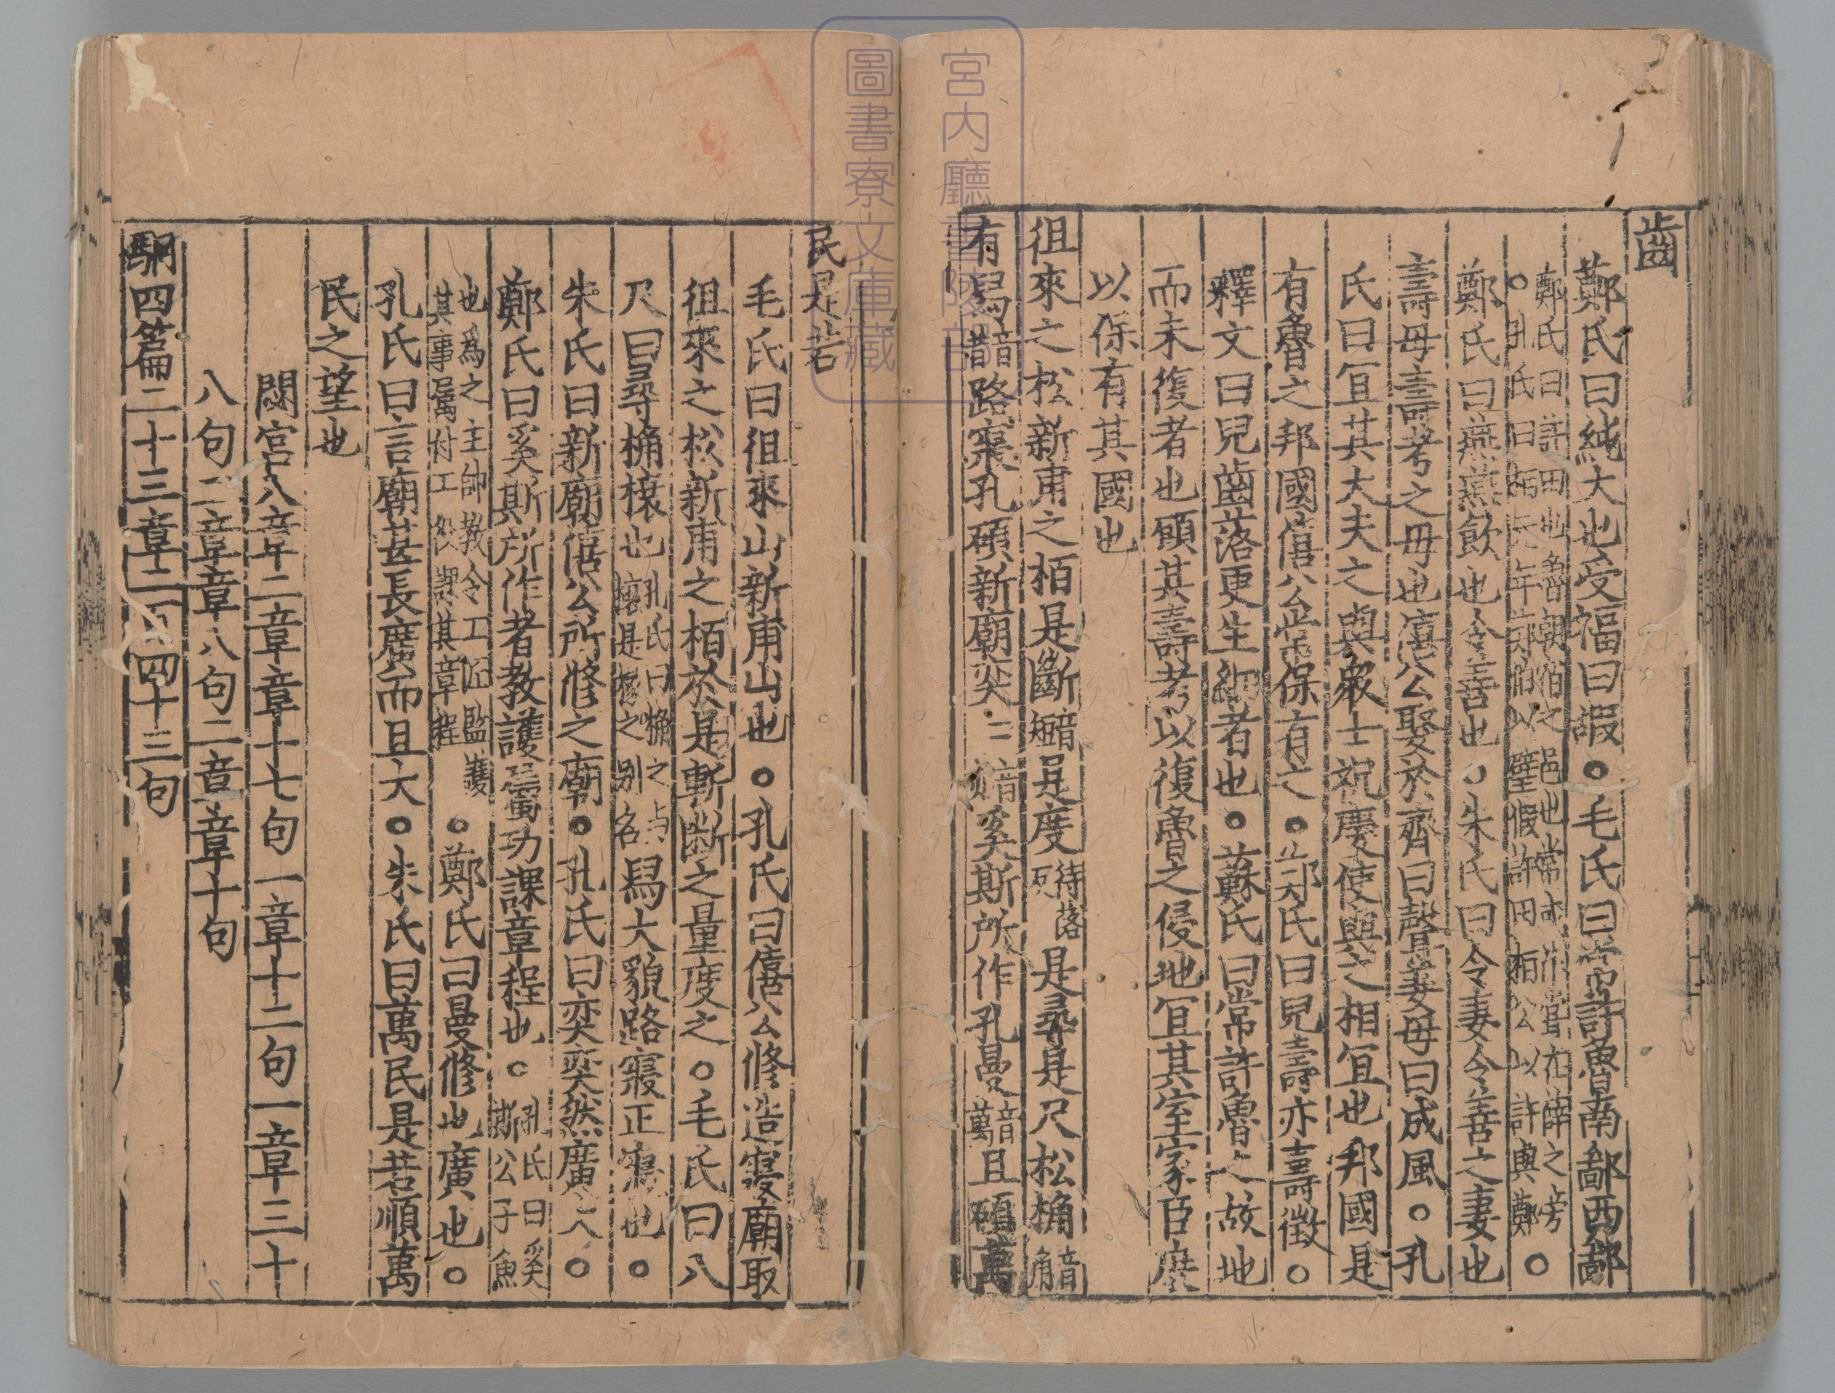 齒
鄭氏曰純大也受福曰嘏○毛氏曰常許魯南鄙西鄙
鄭氏曰許田也魯朝宿之邑也常或作嘗在薛之旁
○孔氏曰桓元年鄭伯以璧假許田桓公以許與鄭○
鄭氏曰燕燕飲也令善也○朱氏曰令妻令善之妻也
壽母壽考之母也僖公娶於齊曰聲姜母曰成風○孔
氏曰宜其大夫之與衆士祝慶使與之相宜也邦國是
有魯之邦國僖公常保有之○鄭氏曰兒壽亦壽徵○
釋文曰兒齒落更生細者也○蘇氏曰常許魯之故地
而未復者也願其壽考以復魯之侵地宜其室家臣庶
以保有其國也
徂來之松新甫之柏是斷音短是度待洛反是尋是尺松桷音角
有舄音昔路寢孔碩新廟奕二音奕斯所作孔曼音萬且碩萬
民是若
毛氏曰徂來山新甫山也○孔氏曰僖公修造寢廟取
徂來之松新甫之栢於是斬斷之量度之○毛氏曰八
尺曰尋桷榱也孔氏曰桷之與榱是椽之別名舄大貌路寢正寢也○
朱氏曰新廟僖公所修之廟○孔氏曰奕奕然廣大○
鄭氏曰奚斯所作者教護屬功課章程也○孔氏曰奚斯公子魚
也爲之主帥教令工匠監護其事屬付工役課其章程○鄭氏曰曼修也廣也○
孔氏曰言廟甚長廣而且大○朱氏曰萬民是若順萬
民之望也
閟宮八章二章章十七句一章十二句一章三十
八句二章章八句二章章十句
駉四篇二十三章二百四十三句
宮内廳書陵部
圖書寮文庫藏